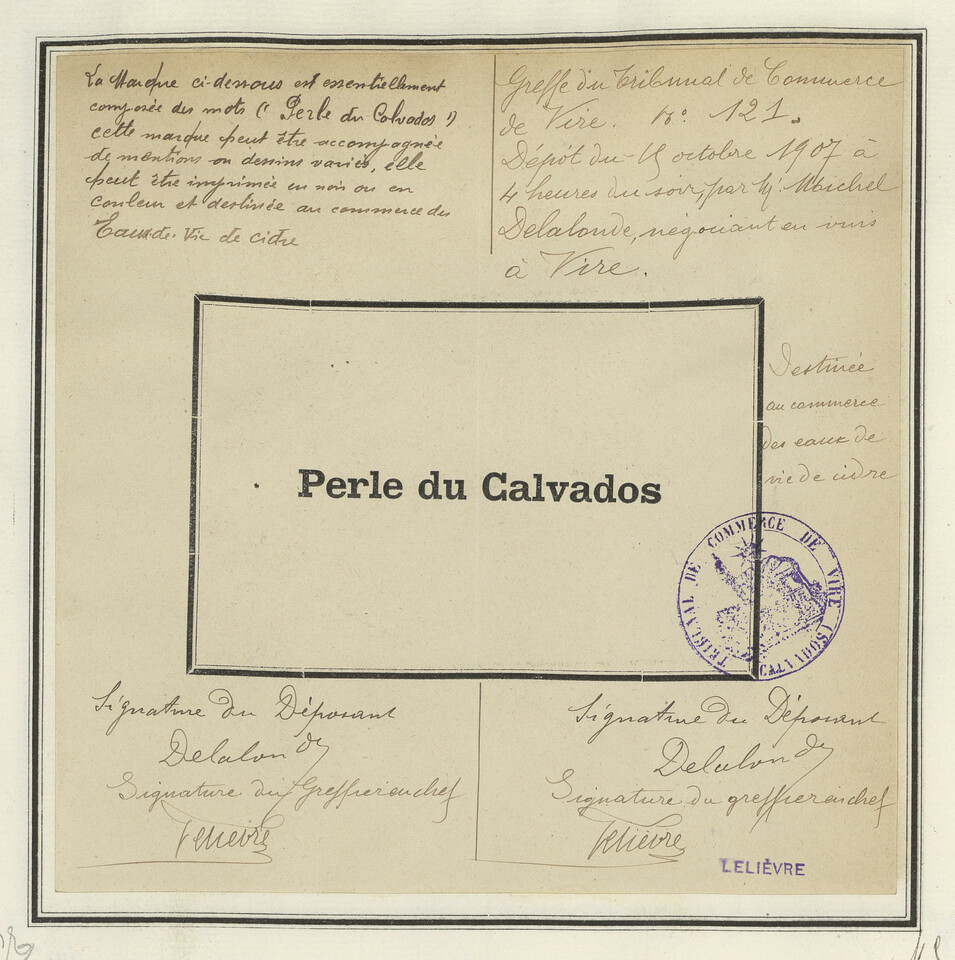 La Marque ci-dessous est essentiellement
composée des mots (" Perle du Calvados ")
cette marque peut être accompagnée
de mentions ou dessins variés, elle
peut être imprimée en noir ou en
couleur et destinée au commerce des
Eaux-de-Vie de cidre
Greffe du Tribunal de Commerce
de Vire. No. 121.
Dépôt du octobre 1907 à
4 heures du soir, par Mr. Maichel
Delalonde, négociant en vins
à Vire.
Destinée
au commerce
des eaux de
vie de cidre
Perle du Calvados
TRIBUNAL DE COMMERCE DE VIRE (CALVADOS)
Signature du Déposant
Delalonde
Signature du Greffier en chef
Lelièvre
Signature du Déposant
Delalonde
Signature du greffier en chef
Lelièvre
LELIÈVRE